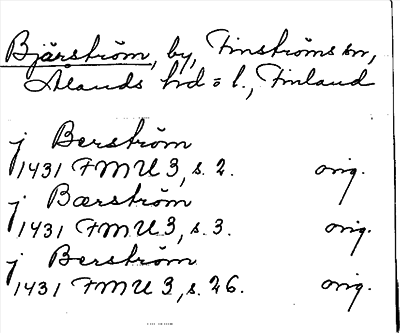 Bjärström, by, Finströms sn,
Ålands hd = l., Finland
j Berström
1431 FMU 3, s. 2. orig.
j Bærström
1431 FMU 3, s. 3. orig.
j Berström
1431 FMU 3, s. 26. orig.